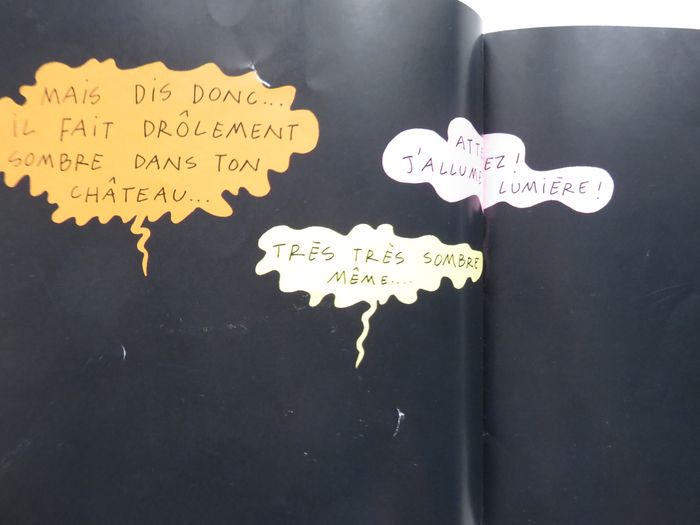 MAIS DIS DONC...
IL FAIT DRÔLEMENT
SOMBRE DANS TON
CHÂTEAU...
TRÈS TRÈS SOMBRE
MÊME....
EZ !
J'ALLUME LUMIÈRE !